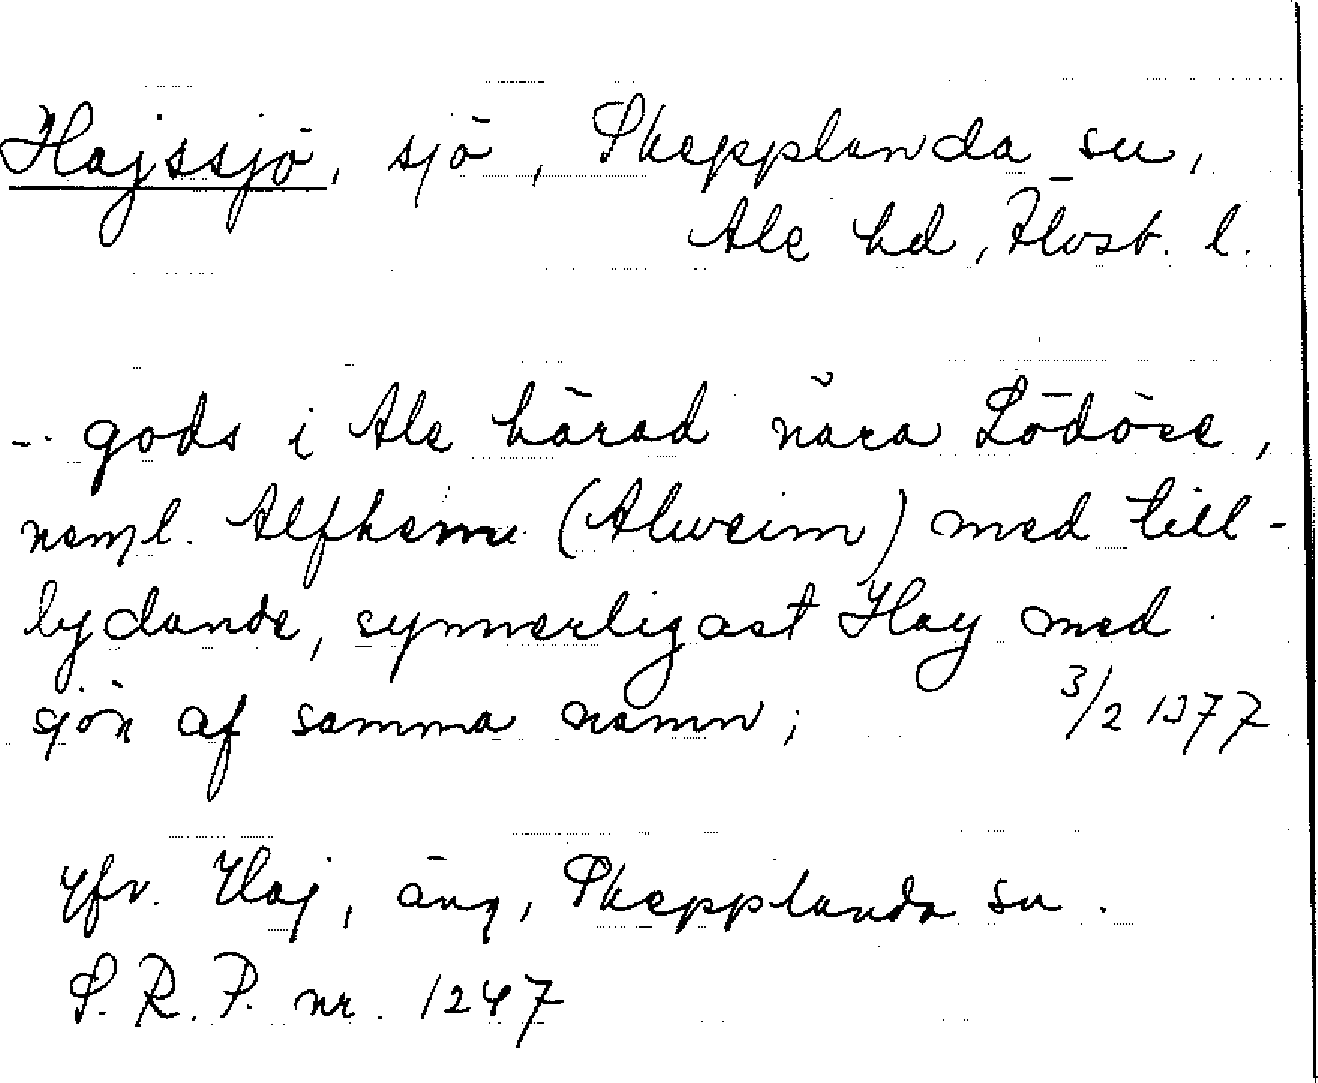 Hajssjö, sjö, Skepplanda sn,
Ale hd, Älvsb. l.
-- gods i Ale härad nära Lödöse,
neml. Alfhem (Alweim) med till-
lydande, synnerligast Hay med
sjön af samma namn; 3/2 1377
Jfr. Haj, äng, Skepplanda sn.
S.R.P. nr. 1247